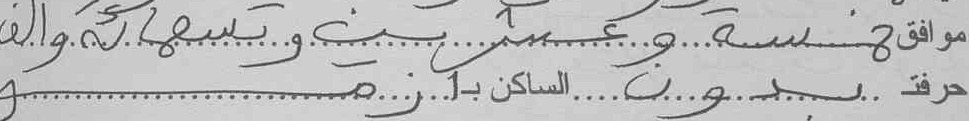 موافق خمسة وعشرين وتسعمائة وألف
حرفته بدون الساكن بـ